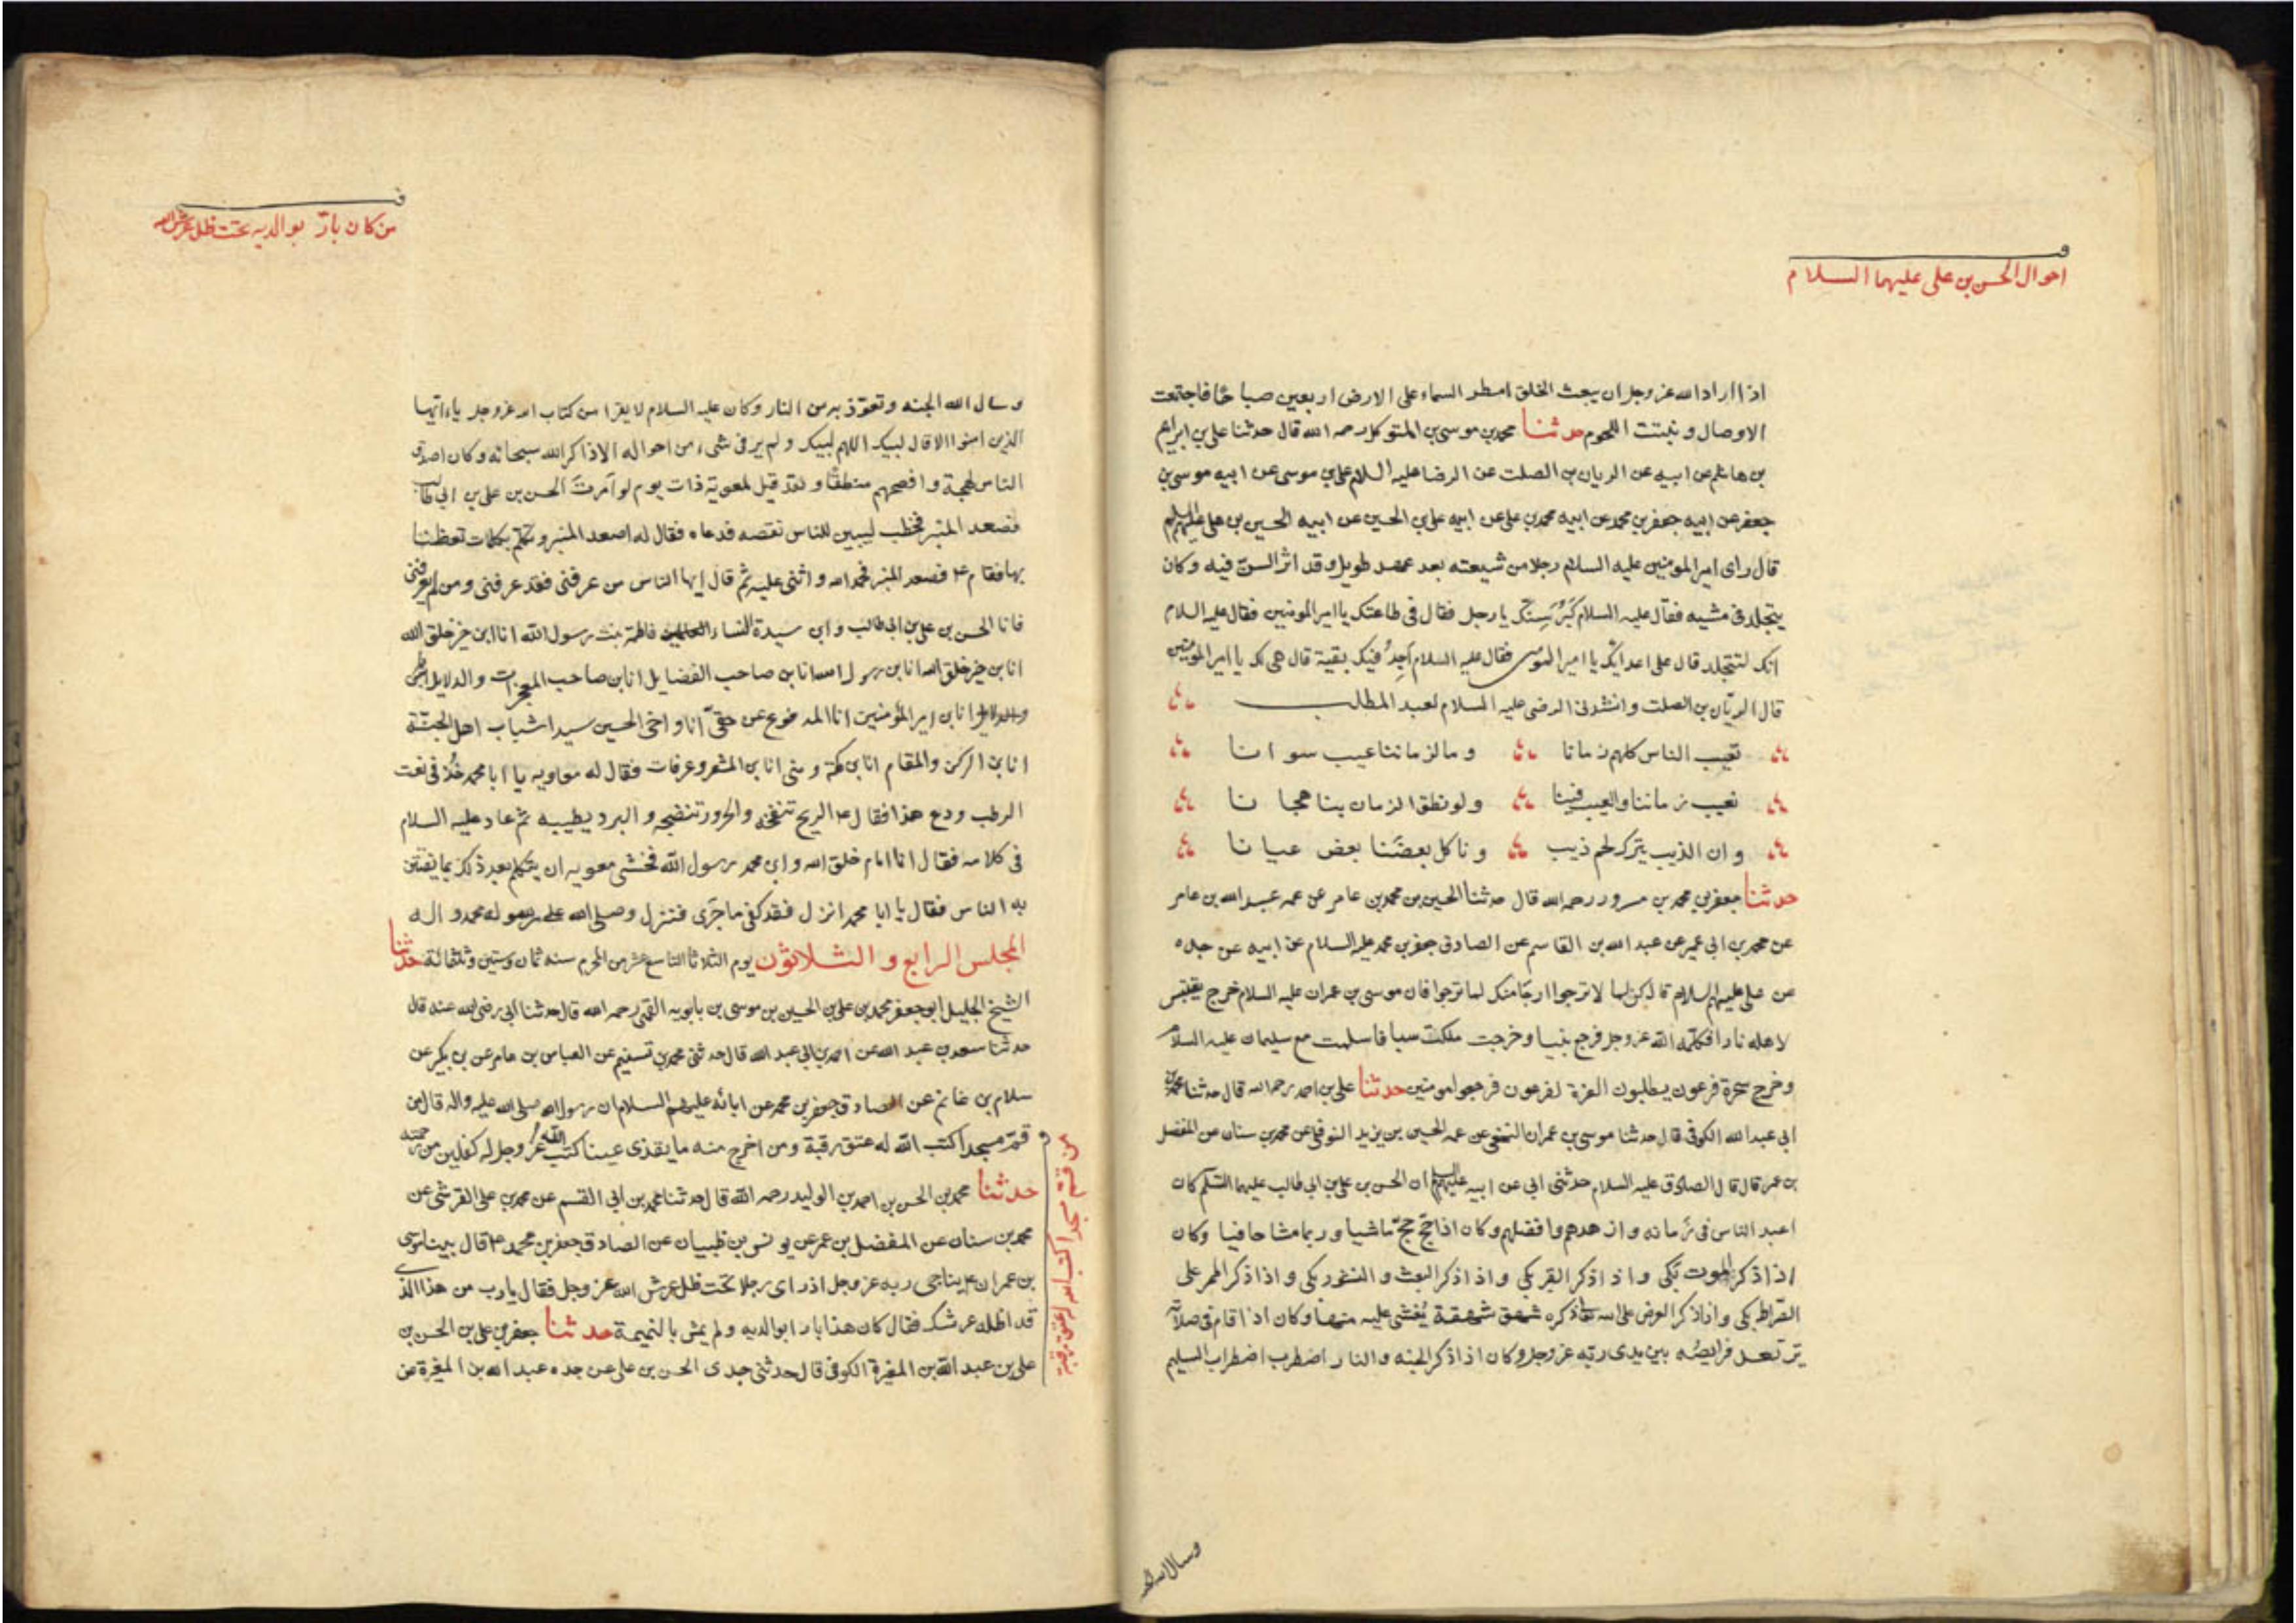 احوال الحسن بن علی علیهما السلام
اذا اراد الله عز وجل ان یبعث الخلق امطر السماء علی الارض اربعین صباحا فاجتمعت
الاوصال و نبتت اللحوم حدثنا محمد بن موسی بن المتوکل رحمه الله قال حدثنا علی بن ابراهیم
بن هاشم عن ابیه عن الریان بن الصلت عن الرضا علیه السلام علی بن موسی عن ابیه موسی بن
جعفر عن ابیه جعفر بن محمد عن ابیه محمد بن علی عن ابیه علی بن الحسین عن ابیه الحسین بن علی علیهم السلم
قال رای امیر المومنین علیه السلام رجلا من شیعته بعد عهد طویل وقد اثر السن فیه وکان
یتجلد فی مشیه فقال علیه السلام کَبُرَ سِنُّک یا رجل فقال فی طاعتک یا امیر المومنین فقال علیه السلام
انک لتتجلد قال علی اعدائک یا امیر المومنین فقال علیه السلام اَجِدُ فیک بقیة قال هی لک یا امیر المومنین
قال الریّان بن الصلت وانشدنی الرضی علیه السلام لعبد المطلب
تعیب الناس کلهم زمانا وما لزماننا عیب سوانا
نعیب زماننا والعیب فینا ولو نطق الزمان بنا هجانا
وان الذیب یترک لحم ذیب وناکل بعضنا بعض عیانا
حدثنا جعفر بن محمد بن مسرور رحمه الله قال حدثنا الحسین بن محمد بن عامر عن عمه عبد الله بن عامر
عن محمد بن ابی عمیر عن عبد الله بن القاسم عن الصادق جعفر بن محمد علیه السلام عن ابیه عن جده
عن علی علیهم السلام قال کن لما لا ترجوا ارجا منک لما ترجوا فان موسی بن عمران علیه السلام خرج یقتبس
لاهله نارا فکلمه الله عز وجل فرجع نبیا وخرجت ملکت سبا فاسلمت مع سلیمان علیه السلام
وخرج سحرة فرعون یطلبون العزة لفرعون فرجعوا مومنین حدثنا علی بن احمد رحمه الله قال حدثنا محمد بن
ابی عبد الله الکوفی قال حدثنا موسی بن عمران النخعی عن عمه الحسین بن یزید النوفلی عن محمد بن سنان عن المفضل
بن عمر قال قال الصادق علیه السلام حدثنی ابی عن ابیه علیهم السلم ان الحسن بن علی بن ابی طالب علیهما السّلم کان
اعبد الناس فی زمانه وازهدهم وافضلهم وکان اذا حج حجّ ماشیا وربما مشا حافیا وکان
اذا ذکر الموت بکی واذا ذکر القبر بکی واذا ذکر البعث والنشور بکی واذا ذکر الممر علی
الصراط بکی واذا ذکر العرض علی الله تعا ذکره شهق شهقة یُغشی علیه منها وکان اذا قام فی صلاته
ترتعد فرایصه بین یدی ربّه عز وجل وکان اذا ذکر الجنه والنار اضطرب اضطراب السلیم
وسال الله
من کان بارّ بوالدیه تحت ظل عرش الله
وسال الله الجنه وتعوّذ به من النار وکان علیه السلام لا یقرا من کتاب الله عز وجل یا ایها
الذین امنوا الا قال لبیک اللهم لبیک ولم یر فی شیء من احواله الا ذاکر الله سبحانه وکان اصدق
الناس لهجة وافصحهم منطقًا ولقد قیل لمعویة ذات یوم لو آمرتَ الحسن بن علی بن ابی طالب
فصعد المنبر فخطب لیبین للناس نقصه فدعاه فقال له اصعد المنبر وتکلّم بکلمات تعظنا
بها فقام ع فصعد المنبر فحمد الله واثنی علیه ثم قال ایها الناس من عرفنی فقد عرفنی ومن لم یعرفنی
فانا الحسن بن علی بن ابی طالب وابن سیدة النساء فاطمة بنت رسول الله انا ابن خیر خلق الله
انا بن خیر خلق الله انا بن رسول الله انا بن صاحب الفضایل انا بن صاحب المعجزات والدلایل
انا بن امیر المؤمنین انا المدفوع عن حقیّ انا واخی الحسین سیدا شباب اهل الجنّة
انا بن الرکن والمقام انا بن مکة ومنی انا بن المشعر وعرفات فقال له معاویه یا ابا محمد خُذ فی نعت
الرطب ودع هذا فقال ع الریح تنفخه والحرور تنضجه والبرد یطیبه ثم عاد علیه السلام
فی کلامه فقال انا امام خلق الله وابن محمد رسول الله فخشی معویه ان یتکلم بعد ذلک بما یفتتن
به الناس فقال یا ابا محمد انزل فقد کفی ما جَرَی فنزل وصلی الله علی رسوله محمد واله
المجلس الرابع والثلاثون یوم الثلاثا التاسع عشر من المحرم سنه ثمان وستین وثلثمائة حدثنا
الشیخ الجلیل ابو جعفر محمد بن علی بن الحسین بن موسی بن بابویه القمّی رحمه الله قال حدثنا ابی رضی الله عنه قال
حدثنا سعد بن عبد الله عن احمد بن ابی عبد الله قال حدثنی محمد بن تسنیم عن العباس بن عامر عن بن بکیر عن
سلام بن غانم عن الصادق جعفر بن محمد عن ابائه علیهم السلام ان رسول الله صلی الله علیه واله قال من
قمّ مسجدا کتب الله له عتق رقبة ومن اخرج منه ما یقذی عینا کتب الله عز وجل له کفلین من رحمته
حدثنا محمد بن الحسن بن احمد بن الولید رحمه الله قال حدثنا محمد بن ابی القسم عن محمد بن علی القرشی عن
محمد بن سنان عن المفضل بن عمر عن یونس بن ظبیان عن الصادق جعفر بن محمد ع قال بینا موسی
بن عمران ع یناجی ربه عز وجل اذ رای رجلا تحت ظل عرش الله عز وجل فقال یا رب من هذا الذی
قد اظله عرشک فقال کان هذا بارا بوالدیه ولم یمش بالنمیمة حدثنا جعفر بن علی بن الحسن بن
علی بن عبد الله بن المغیرة الکوفی قال حدثنی جدی الحسن بن علی عن جده عبد الله بن المغیرة عن
من قمّ مسجدا کتب الله له عتق رقبة